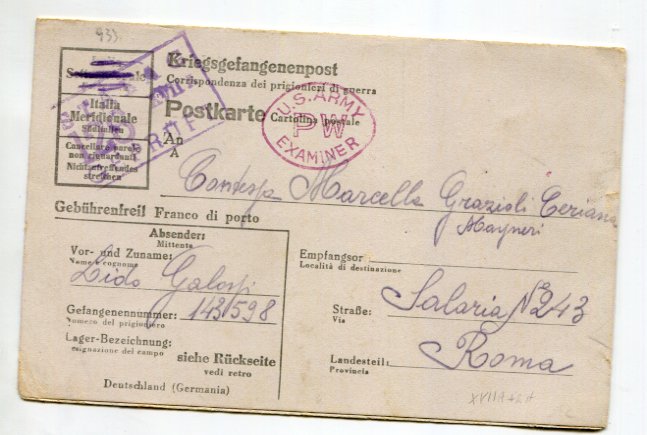 933.
Kriegsgefangenenpost
Corrispondenza dei prigionieri di guerra
Italia
Meridionale
Süditalien
Cancellare parole
non riguardanti
Nichtzutreffendes
streichen
Postkarte Cartolina postale
U.S. ARMY
PW
EXAMINER
An
A
Contessa Marcella Grazioli Ceriana
Mayneri
Gebührenfrei! Franco di porto
Absender:
Mittente
Vor- und Zuname:
Nome e cognome
Lido Galossi
Gefangenennummer: 1431598
Numero del prigioniero
Lager-Bezeichnung:
siehe Rückseite
vedi retro
Deutschland (Germania)
Empfangsor
Località di destinazione
Straße: Salaria N 243
Via
Landesteil: Roma
Provincia